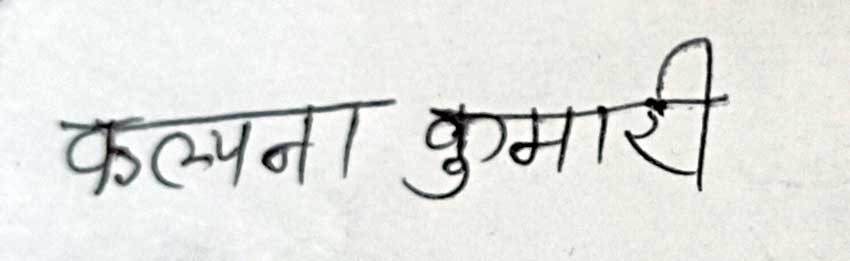 कल्पना कुमारी